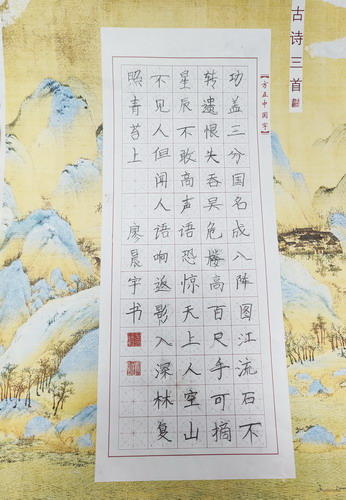 古诗三首
【方正中国字】
功盖三分国名成八阵图江流石不
转遗恨失吞吴危楼高百尺手可摘
星辰不敢高声语恐惊天上人空山
不见人但闻人语响返影入深林复
照青苔上 廖晨宇书